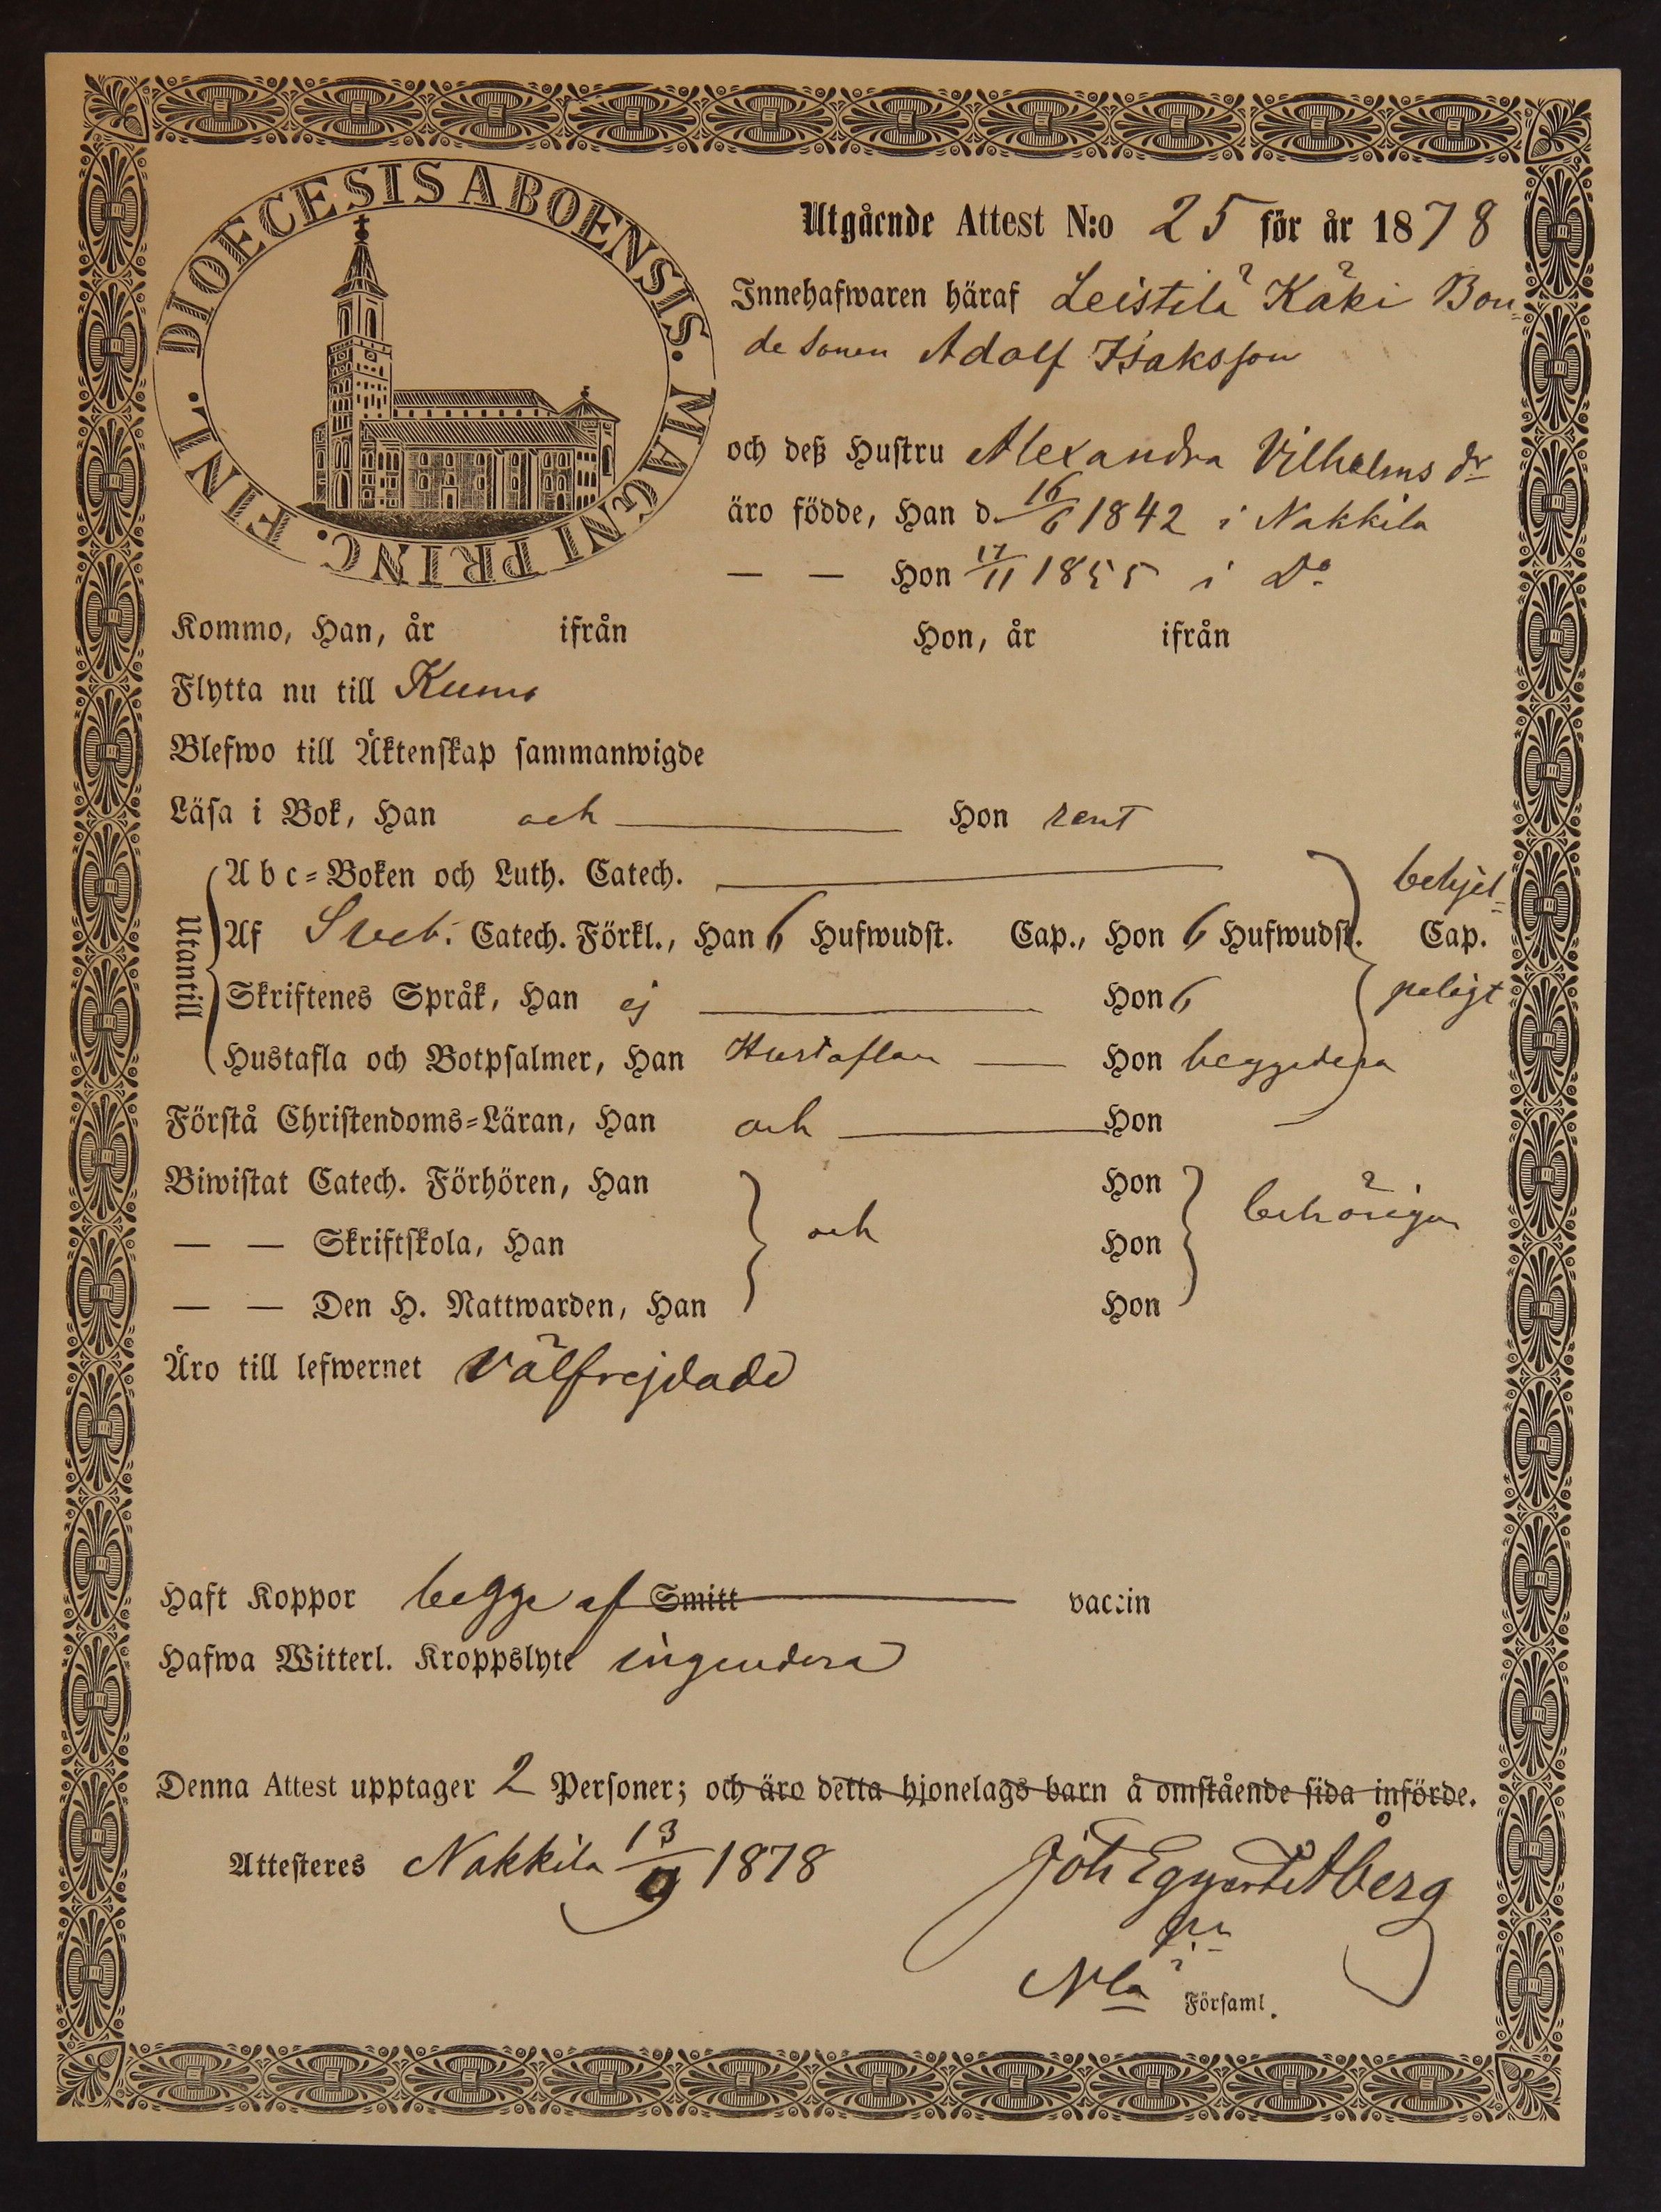 DIOECESIS ABOENSIS. MAGNI PRINC. FINL.
Utgående Attest N:o 25 för år 1878
Innehafwaren häraf Leistilä Käki Bon=
de Sonen Adolf Isaksson
och deß Hustru Alexandra Vilhelms dr
äro födde, Han d. 16/6 1842 i Nakkila
— — Hon 17/11 1855 i Do
Kommo, Han, år ifrån Hon, år ifrån
Flytta nu till Kumo
Blefwo till Äktenskap sammanwigde
Läsa i Bok, Han och — Hon rent
Utantill
Abc=Boken och Luth. Catech. — behjel=
Af Sveb. Catech. Förkl., Han 6 Hufwudst. Cap., Hon 6 Hufwudst. Cap.
Skriftenes Språk, Han ej — Hon 6 peligt
Hustafla och Botpsalmer, Han Hustaflan — Hon beggedera
Förstå Christendoms=Läran, Han och — Hon
Biwistat Catech. Förhören, Han Hon
— — Skriftskola, Han och Hon behörigen
— — Den H. Nattwarden, Han Hon
Äro till lefwernet välfrejdade
Haft Koppor begge af Smitt — vaccin
Hafwa Witterl. Kroppslyte ingendera
Denna Attest upptager 2 Personer; och äro detta hjonelags barn å omstående sida införde.
Attesteres Nakkila 13/9 1878
Joh Egnert Åberg
i
Nla Församl.